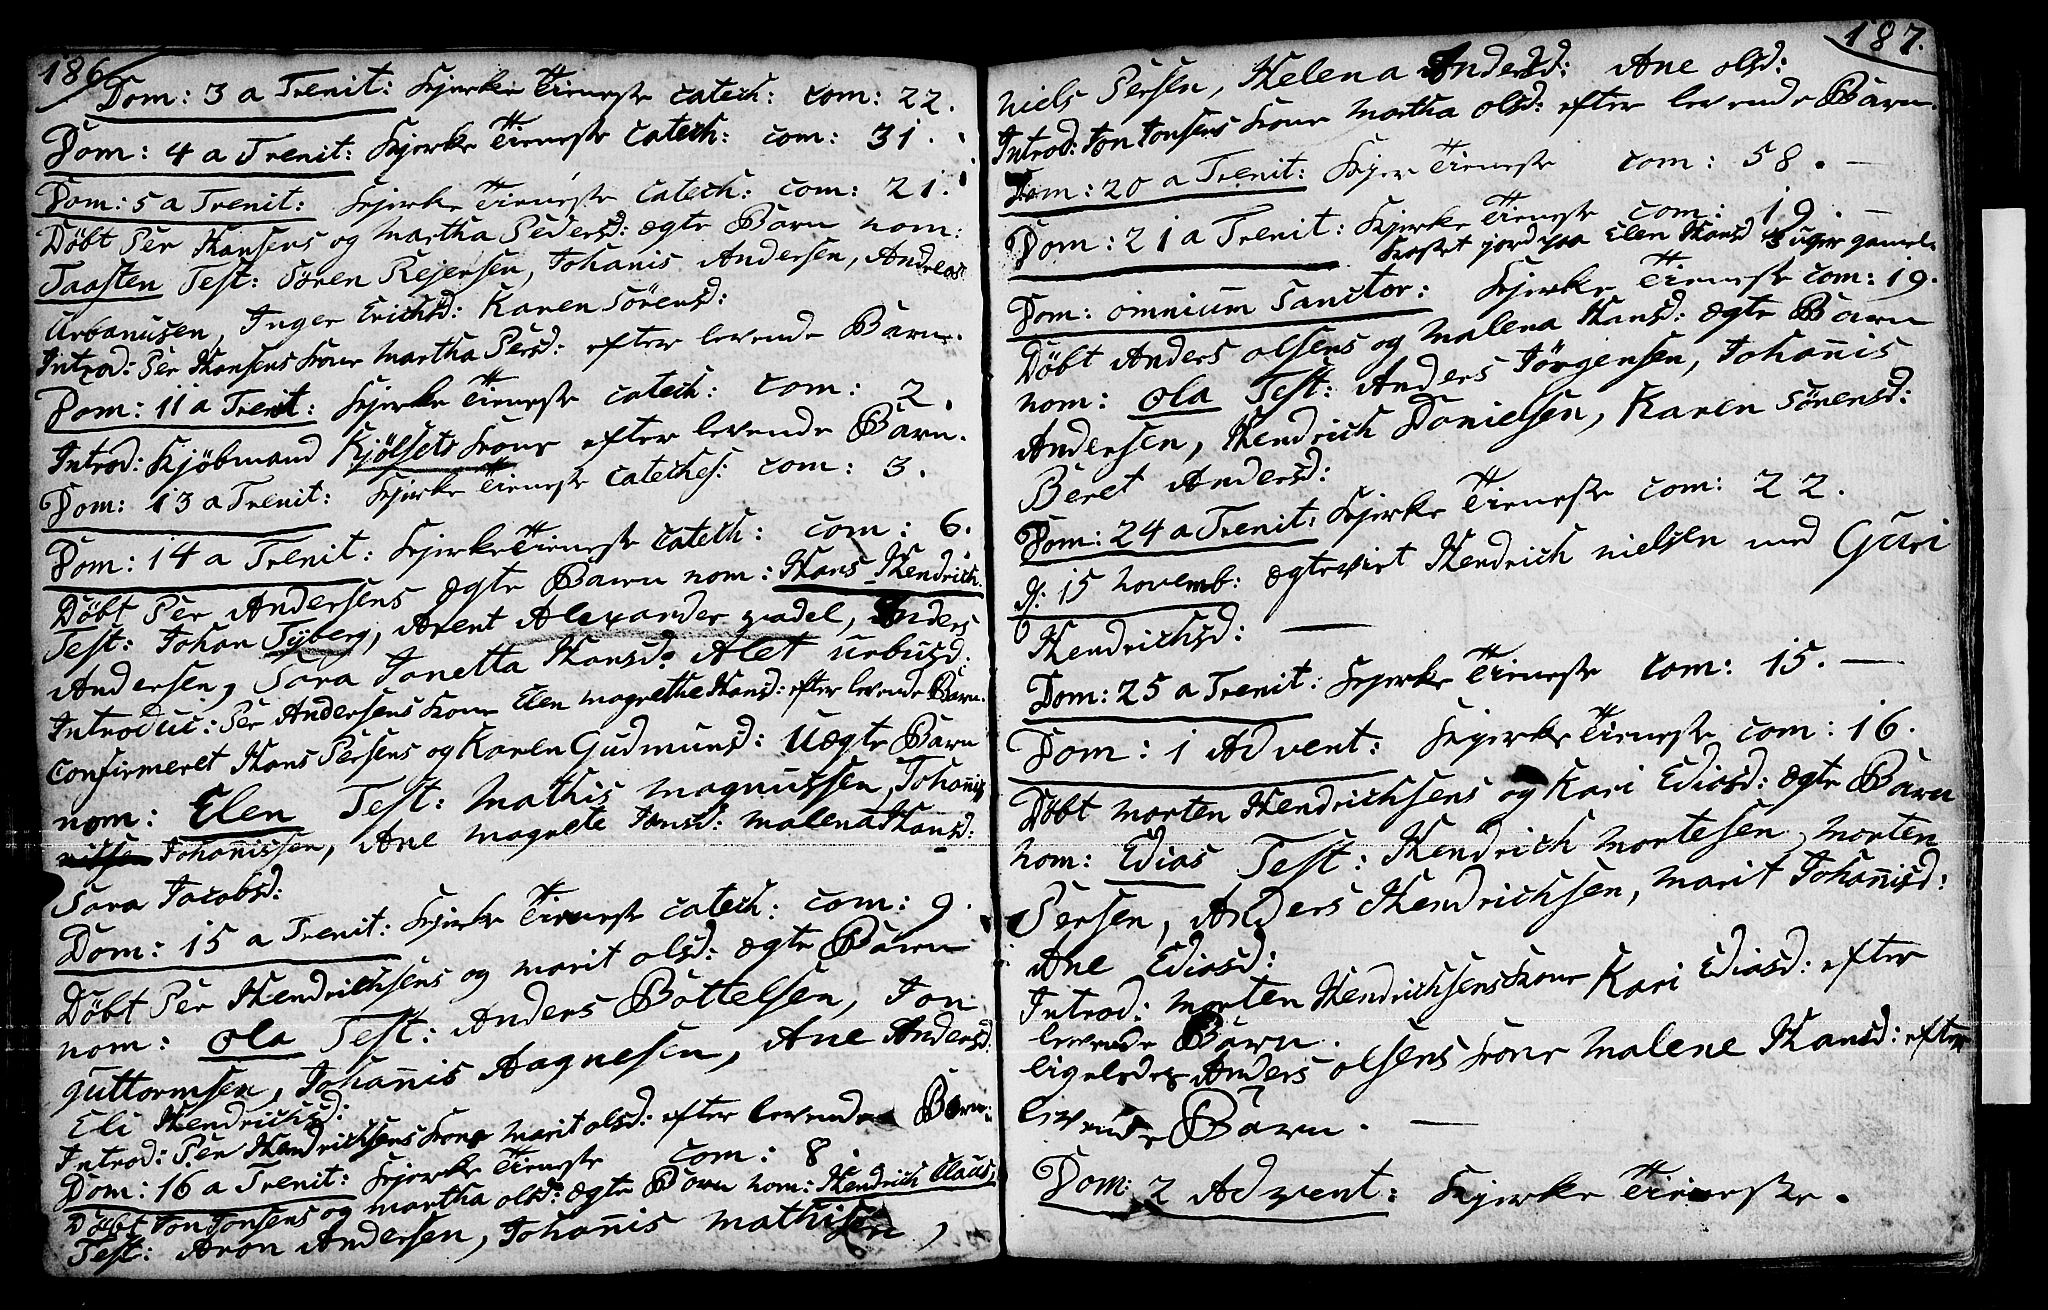 186.
Dom: 3 a Trenit: Kjerke Tieneste catech: com: 22.
Dom: 4 a Trenit: Kjerke Tieneste catech: com: 31.
Dom: 5 a Trenit: Kjerke Tieneste catech: com: 21.
Döbt Per Hansens og Martha Pedersd: ægte Barn nom:
Taasten Test: Sören Rejersen, Johanis Andersen, Andreas
Urbanusen, Inger Erichsd: Karen Sörensd:
Introd: Per Hansens kone Martha Persd: efter levende Barn.
Dom: 11 a Trenit: Kjerke Tieneste catech: com: 2.
Introd: Kjöbmand Kjölsets kone efter levende Barn.
Dom: 13 a Trenit: Kjerke Tieneste cateches: com: 3.
Dom: 14 a Trenit: Kjerke Tieneste catech: com: 6.
Döbt Per Andersens ægte Barn nom: Hans Hendrich.
Test: Johan Tÿberg, Arent Alexander Zadel, Anders
Andersen, Sara Janetta Hansd: Alet Urbusd:
Introduc: Per Andersens kone Elen Magrethe Hansd: efter levende Barn.
Confirmeret Hans Persens og Karen Gudmunsd: Uægte Barn
nom: Elen Test: Mathis Magnussen, Johañis
Johañissen, Ane Magrete Jonsd: Malena Hansd:
Sara Jacobsd:
Dom: 15 a Trenit: Kjerke Tieneste catech: com: 9.
Döbt Per Hendrichsens og Marit olsd: ægte Barn
nom: Ola Test: Anders Bottelsen, Jon
Guttormsen, Johañis Aagnesen, Ane Andersd:
Eli Hendrichsd:
Introd: Per Hendrichsens kone Marit olsd: efter levende Barn:
Dom: 16 a Trenit: Kjerke Tieneste com: 8.
Döbt Jon Jonsens og Martha olsd: ægte Barn nom: Hendrich Claus,
Test: Aron Andersen, Johañis Mathisen,
187.
Niels Persen, Helena Andersd: Ane olsd:
Introd: Jon Jonsens kone Martha olsd: efter levende Barn.
Dom: 20 a Trenit: Kjer Tieneste com: 58. —
Dom: 21 a Trenit: Kjerke Tieneste com: 19. —
kastet jord paa Elen Hansd 3 uger gamel.
Dom: omnium Sanctor: Kjerke Tieneste com: 19.
Döbt Anders olsens og Malena Hansd: ægte Barn
nom: Ola Test: Anders Jörgensen, Johañis
Andersen, Hendrich Danielsen, Karen Sörensd:
Beret Andersd:
Dom: 24 a Trenit: Kjerke Tieneste com: 22.
d: 15 Novemb: ægteviet Hendrich Nielsen med Guri
Hendrichsd: —
Dom: 25 a Trenit: Kjerke Tieneste com: 15. —
Dom: 1 Advent: Kjerke Tieneste com: 16.
Döbt Morten Hendrichsens og Kari Ediasd: ægte Barn
nom: Edias Test: Hendrich Mortesen, Morten
Persen, Anders Hendrichsen, Marit Johañisd:
Ane Ediasd:
Introd: Morten Hendrichsens kone Kari Ediasd: efter
levende Barn.
ligeledes Anders olsens kone Malene Hansd: efter
levende Barn. —
Dom: 2 Advent: Kjerke Tieneste.